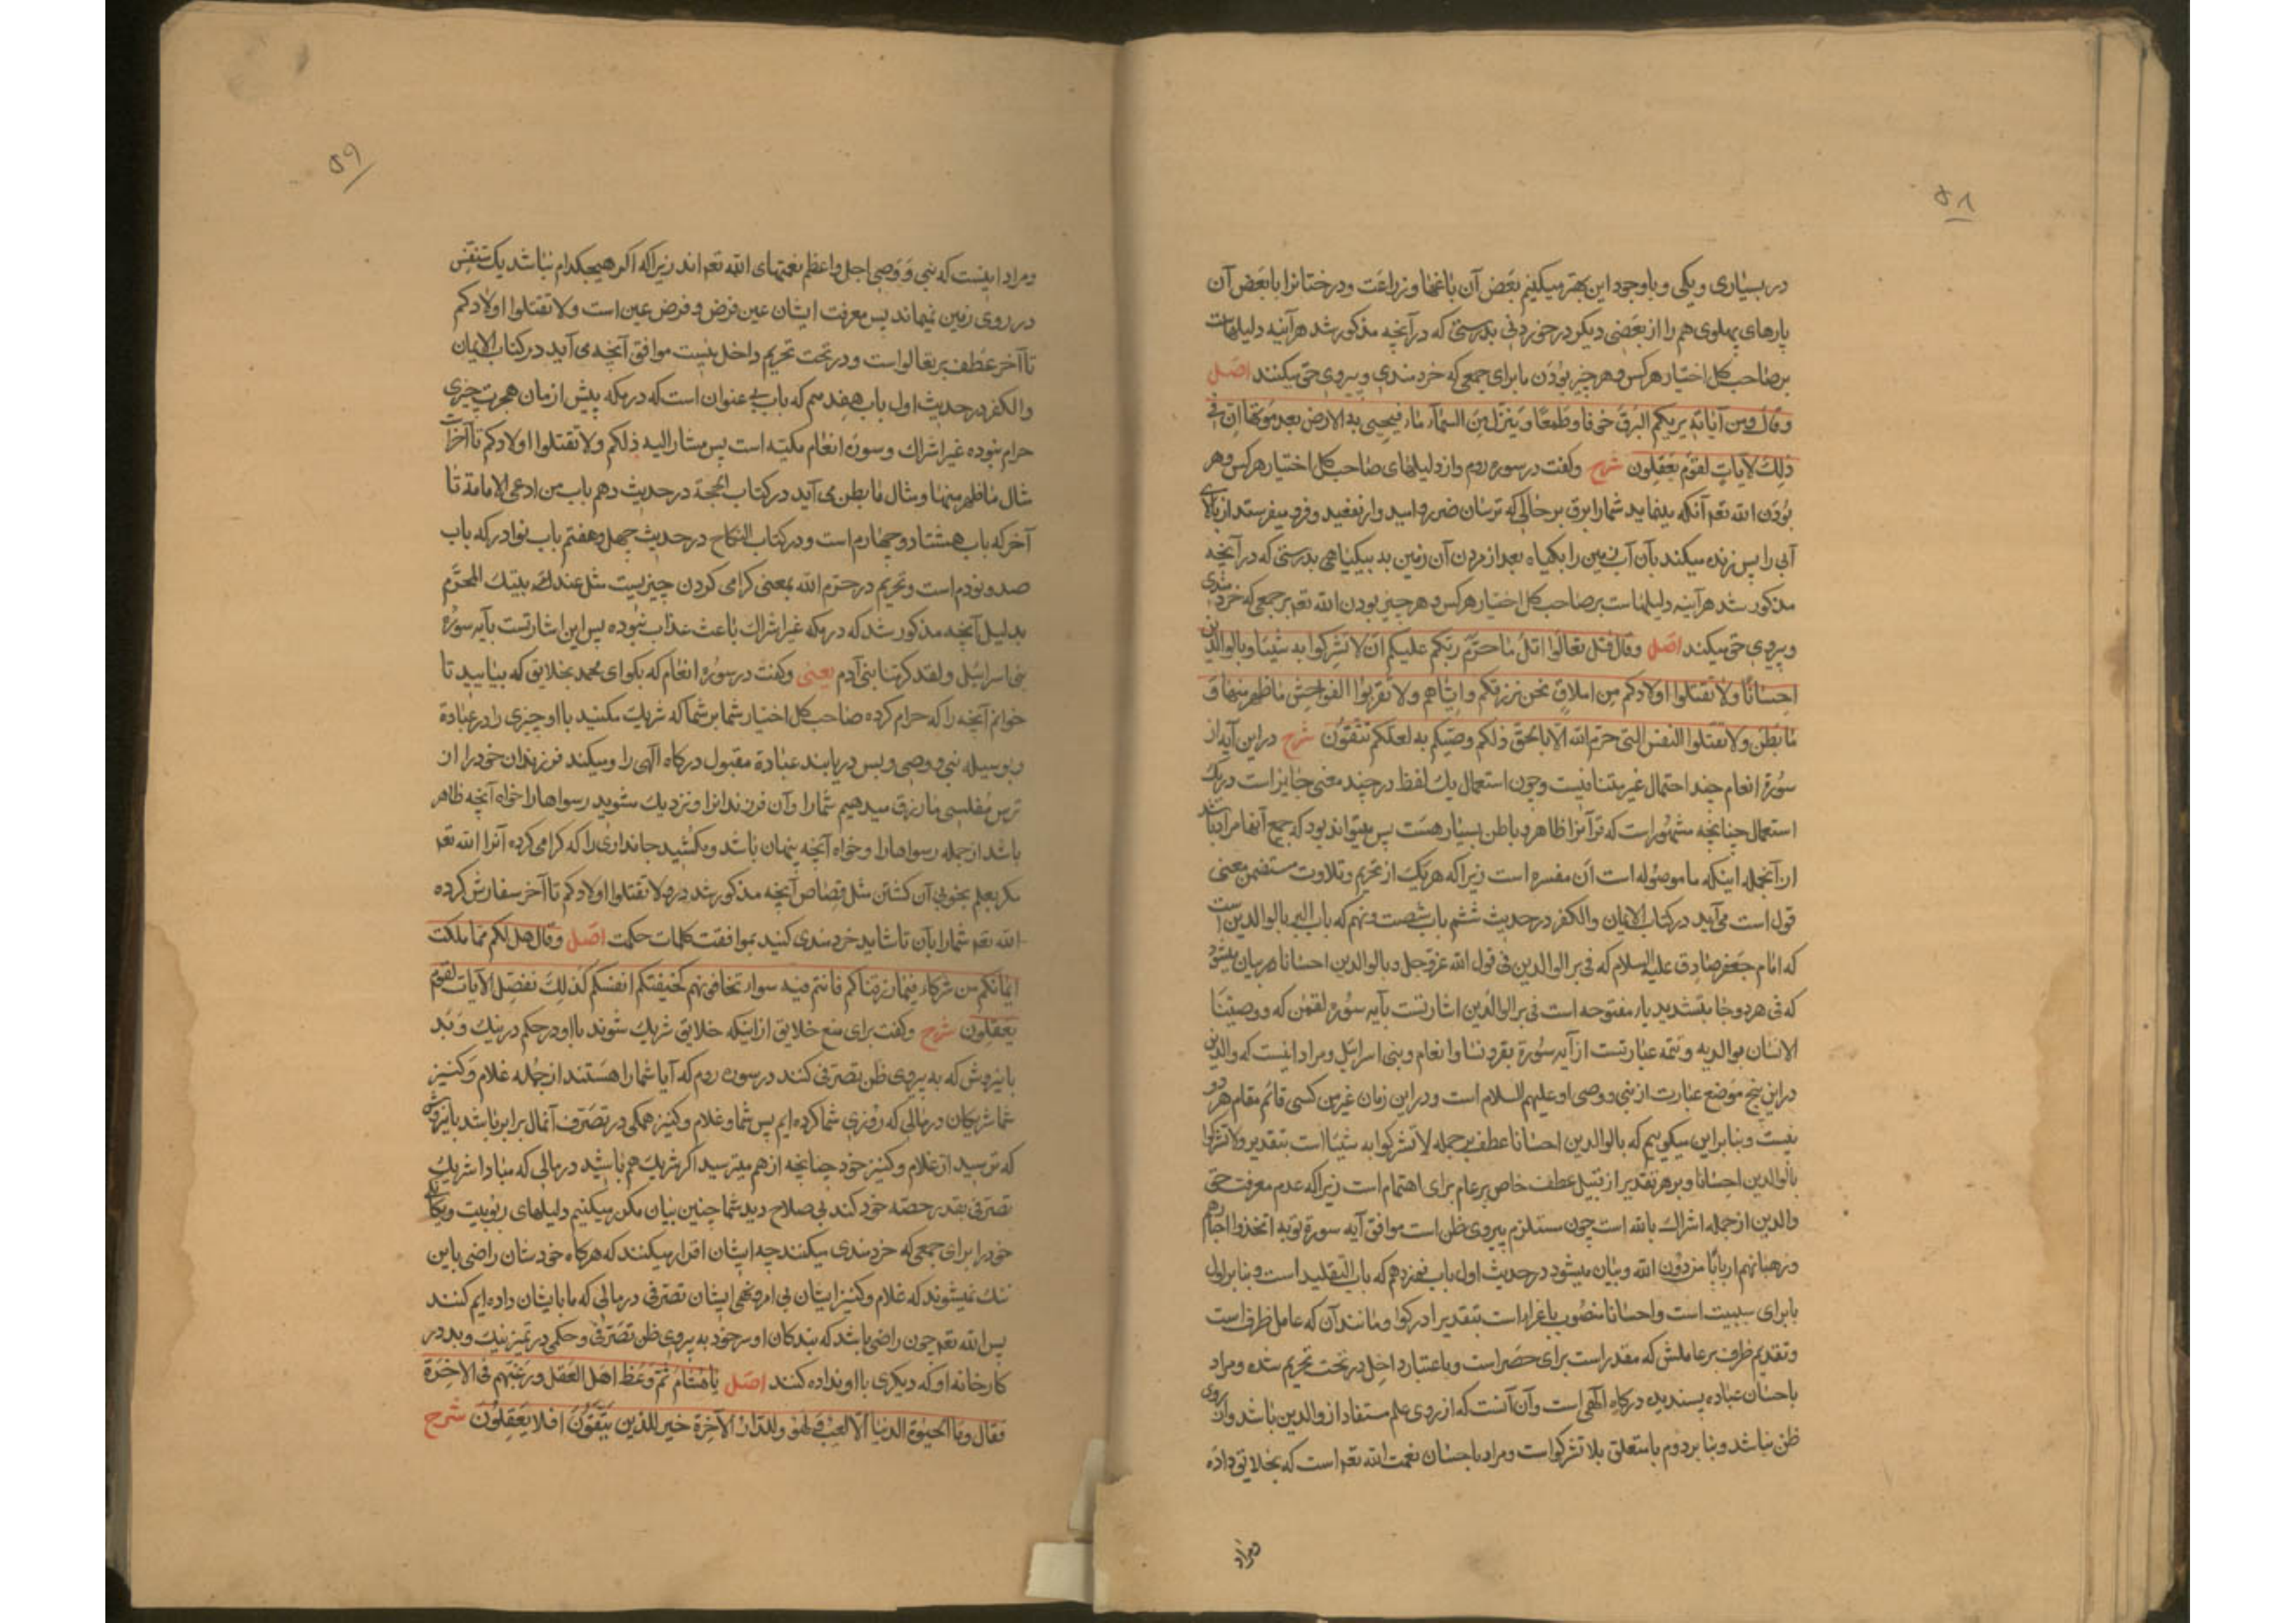 ۵۸
در بسیاری و یکی و باوجود این بهتر میکنیم بعض آن باغها و زراعت و درختانرا با بعض آن
پارهای پهلوی هم را از بعضی دیکر در خوردنی بدرستی که در آنچه مذکور شد هرآینه دلیلهاست
بر صاحب کل اختیار هر کس و هر چیز بودن ما برای جمعی که خردمندی و پیروی حق میکنند اصل
وقال ومن آیاته یریکم البرق خوفا وطمعا وینزل من السمآء مآء فیحیی به الارض بعد موتها ان فی
ذلک لآیات لقوم یعقلون شرح وکفت در سوره روم واز دلیلهای صاحب کل اختیار هر کس و هر
بودن الله تعم آنکه مینماید شما را برق بر حالی که ترسان ضررو امید وار نفعید و فرو میفرستد از بالای
آبی را پس زنده میکند بآن آب زمین را بکیاه بعد از مردن آن زمین به بیکیاهی بدرستی که در آنچه
مذکور شد هرآینه دلیلهاست بر صاحب کل اختیار هر کس و هر چیز بودن الله تعم بر جمعی که خردمندی
و پیروی حق میکنند اصل وقال قل تعالوا اتل ما حرم ربکم علیکم ان لا تشرکوا به شیئا وبالوالدین
احسانا ولا تقتلوا اولادکم من املاق نحن نرزقکم وایاهم ولا تقربوا الفواحش ما ظهر منها و
ما بطن ولا تقتلوا النفس التی حرم الله الا بالحق ذلکم وصیکم به لعلکم تتقون شرح در این آیه از
سورة انعام چند احتمال غیر متنافیست و چون استعمال یک لفظ در چند معنی جایز است در یک
استعمال چنانچه مشهور است که قرآنرا ظاهر و باطن بسیار هست پس میتواند بود که جمع آنها مراد باشد
از آنجمله اینکه ما موصوله است ان مفسره است زیرا که هر یک از تحریم و تلاوت متضمن معنی
قول است می آید در کتاب الایمان والکفر در حدیث ششم باب شصت و نهم که باب البر بالوالدین است
که امام جعفر صادق علیه السلام که فی بر الوالدین فی قول الله عز وجل وبالوالدین احسانا و بیان میشود
که فی هر دو جا بتشدید یاء مفتوحه است فی بر الوالدین اشارتست بآیه سوره لقمن که ووصینا
الانسان بوالدیه و تتمه عبارتست از آیه سورة بقره و نسا و انعام و بنی اسرائیل و مراد اینست که والدین
در این پنج موضع عبارت از نبی و وصی او علیهم السلام است و در این زمان غیر من کسی قائم مقام هر دو
نیست و بنابر این میکوییم که بالوالدین احسانا عطف بر جمله لا تشرکوا به شیئا است بتقدیر ولا تشرکوا
بالوالدین احسانا و بر هر تقدیر از قبیل عطف خاص بر عام برای اهتمام است زیرا که عدم معرفت حق
والدین از جمله اشراک بالله است چون مستلزم پیروی ظن است موافق آیه سورة توبه اتخذوا احبارهم
ورهبانهم اربابا من دون الله و بیان میشود در حدیث اول باب نوزدهم که باب التقلید است و بنابر اول
با برای سببیت است و احسانا منصوب باغراست بتقدیر ادرکوا و مانند آن که عامل ظرف است
وتقدیم ظرف بر عاملش که مقدر است برای حصر است و باعتبار داخل در تحت تحریم شده و مراد
باحسان عباده پسندیده درکاه الهی است و آن آنست که از روی علم مستفاد از والدین باشد و از روی
ظن نباشد و بنا بر دوم با متعلق بلا تشرکوا است و مراد باحسان نعمت الله تعم است که بخلایق داده
ومراد
۵۹
ومراد اینست که نبی و وصی اجل و اعظم نعمتهای الله تعم اند زیرا که اکر هیچکدام نباشد یک متنفس
در روی زمین نمیماند پس معرفت ایشان عین فرض و فرض عین است ولا تقتلوا اولادکم
تا آخر عطف بر تعالوا است و در تحت تحریم داخل نیست موافق آنچه می آید در کتاب الایمان
والکفر در حدیث اول باب هفدهم که باب بی عنوان است که در مکه پیش از زمان هجرت چیزی
حرام نبوده غیر اشراک و سورة انعام مکیه است پس مشار الیه ذلکم ولا تقتلوا اولادکم تا آخر است
مثال ما ظهر منها و مثال ما بطن می آید در کتاب الحجة در حدیث دهم باب من ادعی الامامة تا
آخر که باب هشتاد و چهارم است و در کتاب النکاح در حدیث چهل و هفتم باب نوادر که باب
صد و نودم است و تحریم در حرم الله بمعنی کرامی کردن چیزیست مثل عند بیتک المحرم
بدلیل آنچه مذکور شد که در مکه غیر اشراک باعث عذاب نبوده پس این اشارتست بآیه سورة
بنی اسرائیل ولقد کرمنا بنی آدم یعنی وکفت در سوره انعام که بکو ای محمد بخلایق که بیایید تا
خوانم آنچه را که حرام کرده صاحب کل اختیار شما بر شما که شریک مکنید با او چیزی را در عبادة
و بوسیله نبی و وصی و بس دریابند عبادة مقبول درکاه الهی را و میکند فرزندان خود را از
ترس مفلسی ما رزق میدهیم شما را و آن فرزندانرا و نزدیک مشوید رسواها را خواه آنچه ظاهر
باشد از جمله رسواها را و خواه آنچه پنهان باشد و مکشید جانداری را که کرامی کرده آنرا الله تعم
مکر بعلم بخوبی آن کشتن مثل قصاص آنچه مذکور شد در ولا تقتلوا اولادکم تا آخر سفارش کرده
الله تعم شما را بآن تا شاید خردمندی کنید بموافقت کلمات حکمت اصل وقال هل لکم مما ملکت
ایمانکم من شرکاء فیما رزقناکم فانتم فیه سواء تخافونهم کخیفتکم انفسکم کذلک نفصل الآیات لقوم
یعقلون شرح وکفت برای منع خلایق از اینکه خلایق شریک شوند با او در حکم در نیک و بد
باین روش که به پیروی ظن تصرفی کنند در سوره روم که آیا شما را هستند از جمله غلام و کنیز
شما شریکان در مالی که روزی شما کرده ایم پس شما و غلام و کنیز همکی در تصرف آنمال برابر باشد باین روش
که ترسید از غلام و کنیز خود چنانچه از هم میترسید اکر شریک هم باشید در مالی که مبادا شریک
تصرفی بقدر حصه خود کند بی صلاح دید شما چنین بیان مکرر میکنیم دلیلهای ربوبیت و یکانکی
خود را برای جمعی که خردمندی میکنند چه ایشان اقرار میکنند که هرکاه خودشان راضی باین
ننک نمیشوند که غلام و کنیز ایشان بی امر و نهی ایشان تصرفی در مالی که ما بایشان داده ایم کنند
پس الله تعم چون راضی باشد که بندکان او سر خود به پیروی ظن تصرفی و حکمی در تمیز نیک و بد در
کارخانه او که دیکری با او نداده کنند اصل یا هشام ثم وعظ اهل العقل ورغبهم فی الاخرة
فقال وما الحیوة الدنیا الا لعب ولهو وللدار الآخرة خیر للذین یتقون افلا یعقلون شرح